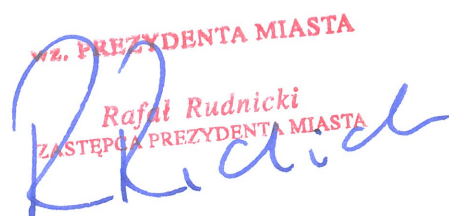 wz. PREZYDENTA MIASTA
Rafał Rudnicki
ZASTĘPCA PREZYDENTA MIASTA